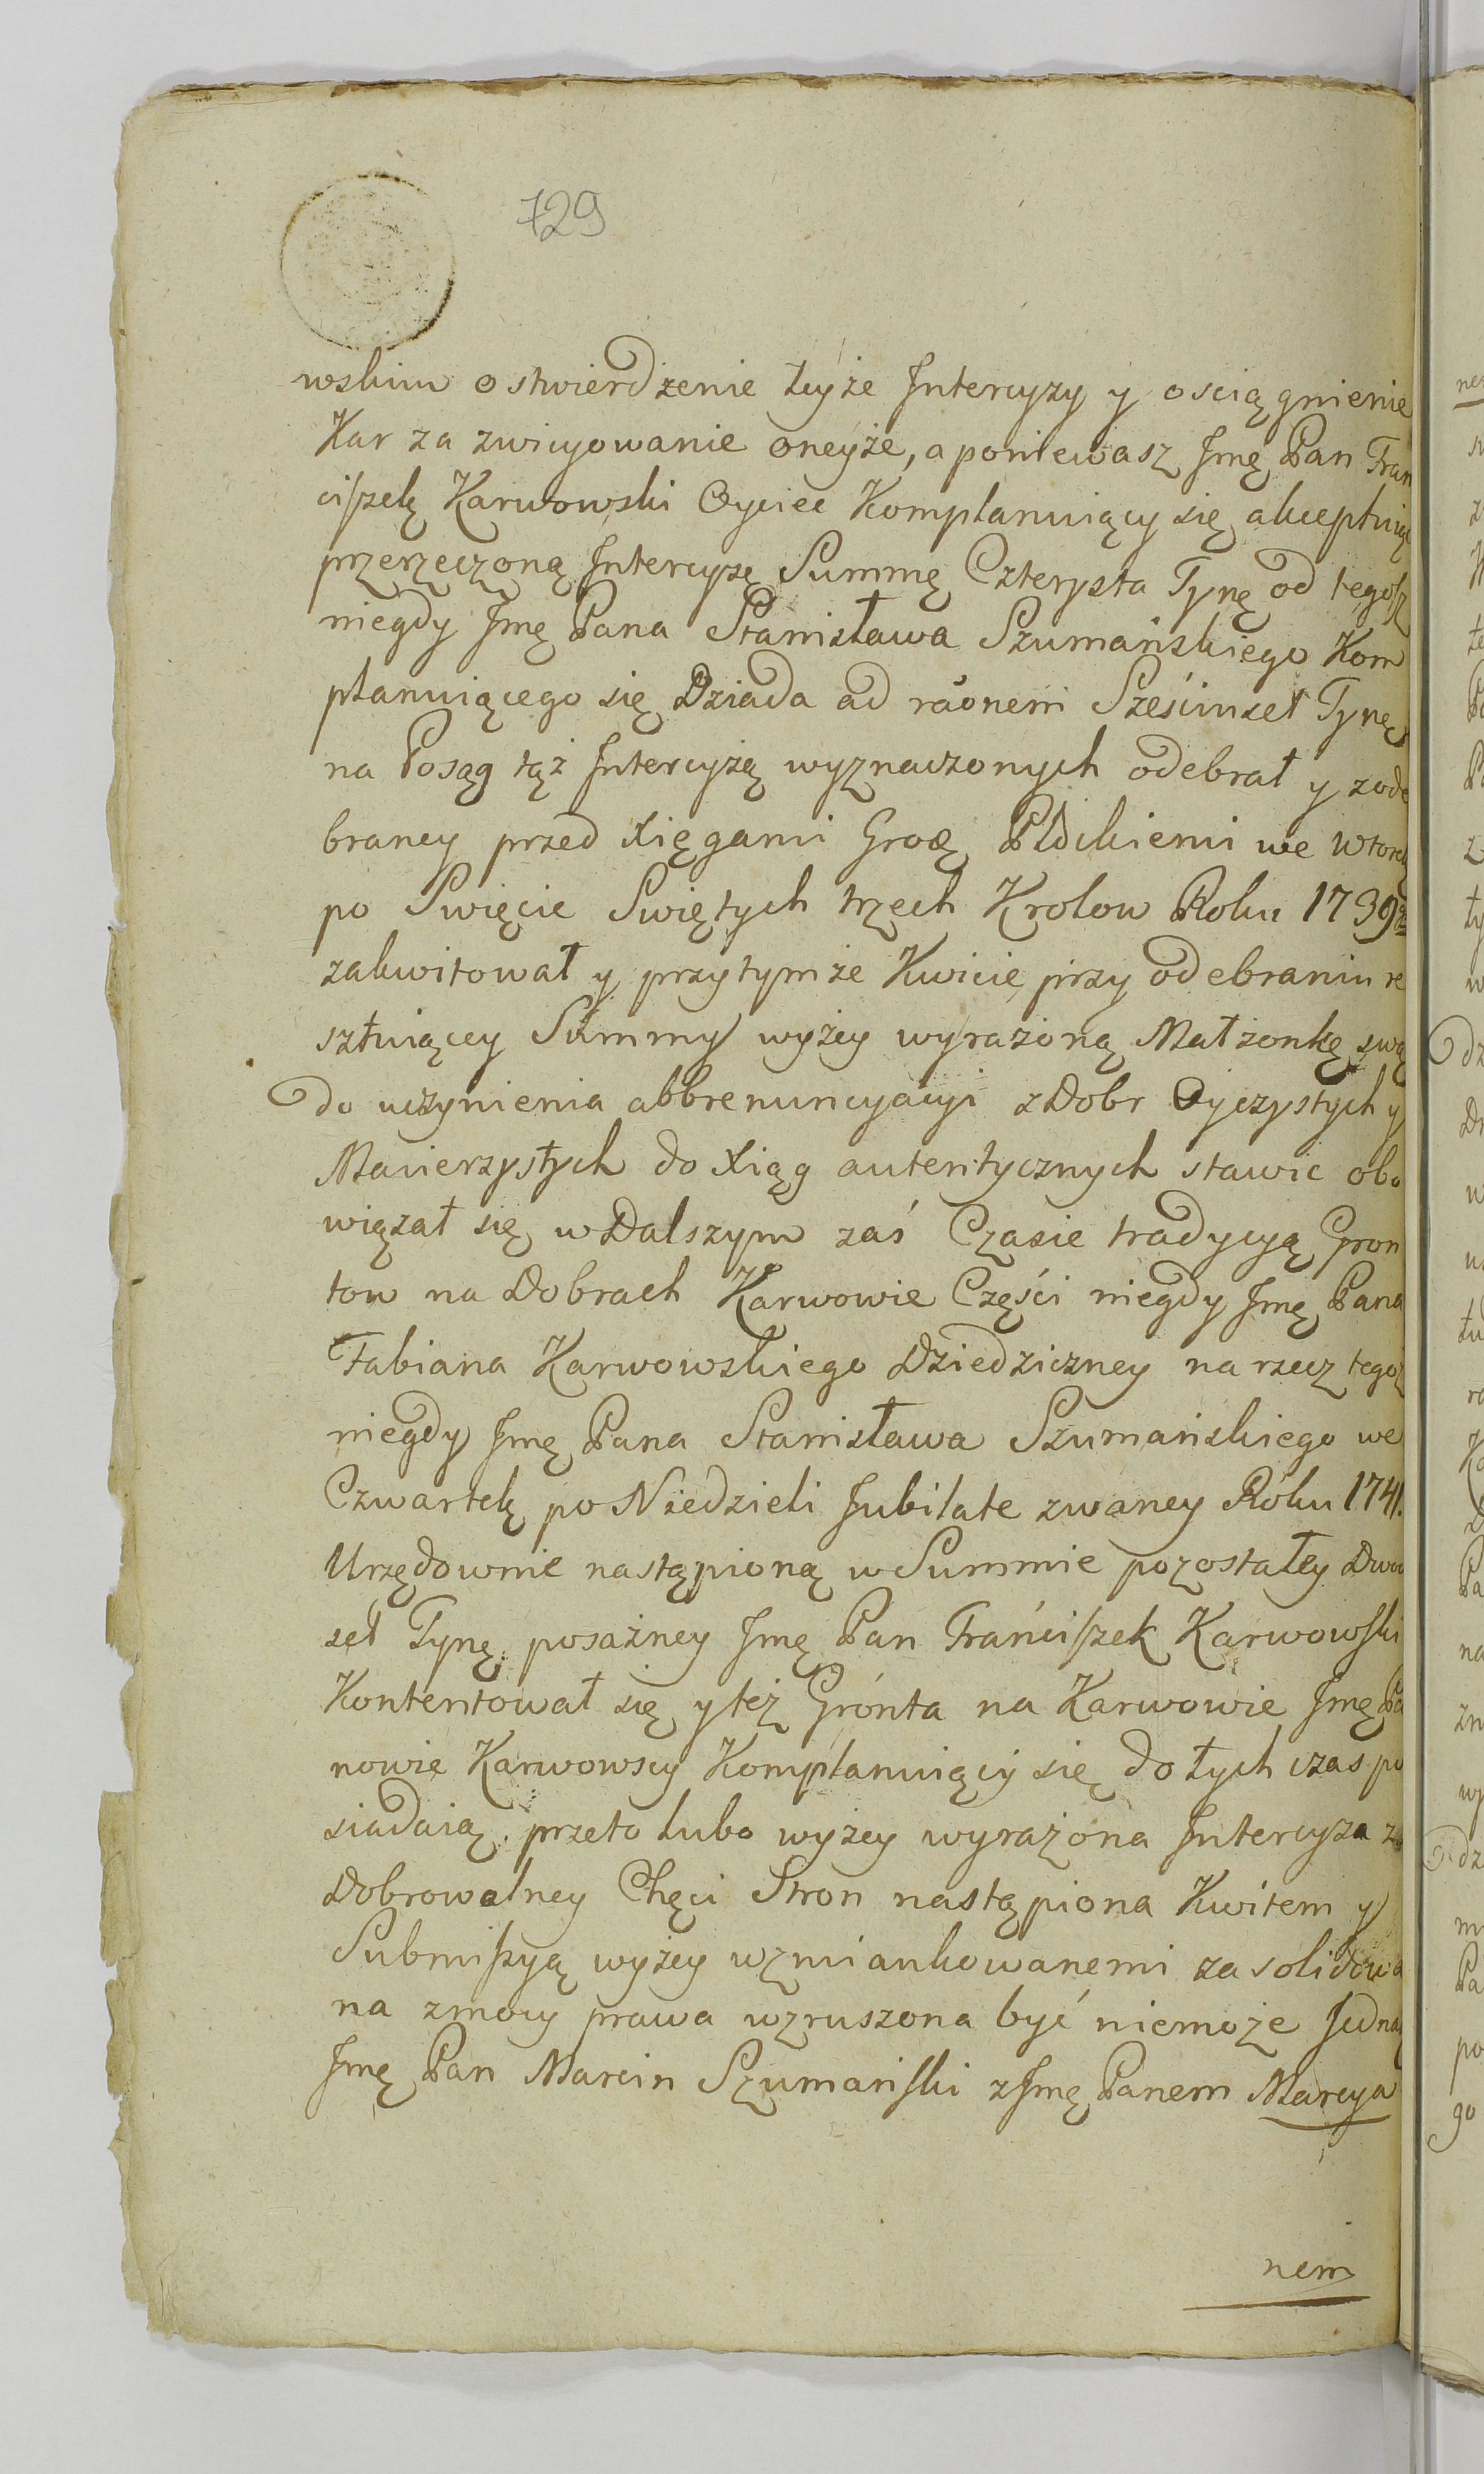 729
wskim o stwierdzenie teyże Intercyzy y ościągnienie
Kar za zwicyowanie oneyże, a poniewasz Jmę Pan Fran
ciszek Karwowski Oyciec Komplanuiący się akceptuiąc
przerzeczoną Intercyzę Summę Czterysta Tynę od tegosz
niegdy Jmę Pana Stanisława Szumańskiego Kom
planuiącego się Dziada ad raonem Sześciuset Tynę
na Posąg tąż Intercyzą wyznaczonych odebrał y zode
braney przed Xięgami Grodę Płdckiemi we wtorek
po Swięcie Swiętych trzech Krolow Roku 1739
zakwitował y przytymże Kwicie przy odebraniu re
sztuiącey Summy wyżey wyrażoną Małżonkę swą
do uczynienia abbrenuncyacyi z Dobr Oyczystych y
Macierzystych do Xiąg autentycznych stawic obo
wiązał się w Dalszym zaś Czasie tradycyą Gron
tow na Dobrach Karwowie Części niegdy Jmę Pana
Fabiana Karwowskiego Dziedziczney na rzecz tegoż
niegdy Jmę Pana Stanisława Szumańskiego we
Czwartek po Niedzieli Jubilate zwaney Roku 1741.
Urzędownie nastąpioną w Summie pozostałey Dwu
set Tynę posażney Jmę Pan Franciszek Karwowski
Kontentował się y też Grónta na Karwowie Jmę Pa
nowie Karwowscy Komplanuiący się do tych czas po
siadaią. przeto lubo wyżey wyrażona Intercyza z
Dobrowolney Chęci Stron nastąpiona Kwitem y
Submiszyą wyżey wzmiankowanemi zasolidowa
na zmocy prawa wzruszona być niemoże Jednak
Jmę Pan Marcin Szumański z Jmę Panem Marcya
nem